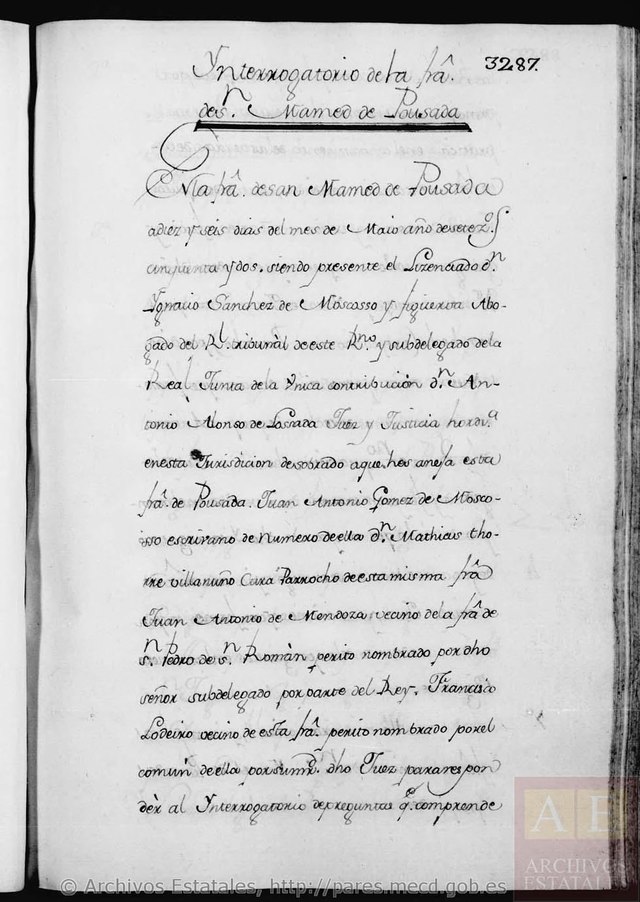 3287.
Ynterrogatorio de la frâ.
de sn. Mamed de Pousada
En la frâ. de san Mamed de Pousada
a diez y seis dias del mes de Maio año de setezos
cinquenta y dos, siendo presente el Lizenciado dn
Ygnacio Sanchez de Moscosso y figueroa Abo-
gado del Rl. tribunal de este Rno y subdelegado de la
Real Junta de la Vnica contribución dn. An-
tonio Alonso de Losada Juez y Justicia hordia
en esta Jurisdicion de sobrado a que hes aneja esta
frâ. de Pousada. Juan Antonio Gomez de Mosco-
sso escrivano de Numero de ella dn Mathias tho-
rre villanuño Cura Parrocho de esta misma frâ
Juan Antonio de Mendoza vecino de la frâ de
sn Pedro de sn. Romàn perito nombrado por dho
señor subdelegado por parte del Rey, Francisco
Lodeiro vecino de esta frâ. perito nombrado por el
comun de ella por su mrd. dho Juez para respon
dèr al Ynterrogatorio de preguntas qe. comprende
© Archivos Estatales, http://pares.mecd.gob.es
AE
ARCHIVOS
ESTATALES